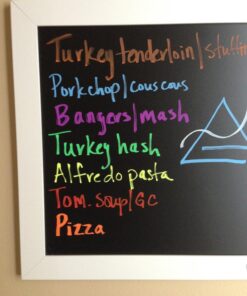 Turkey tenderloin/stuffin
Porkchop/couscous
Bangers/mash
Turkey hash
Alfredo pasta
Tom. soup/GC
Pizza